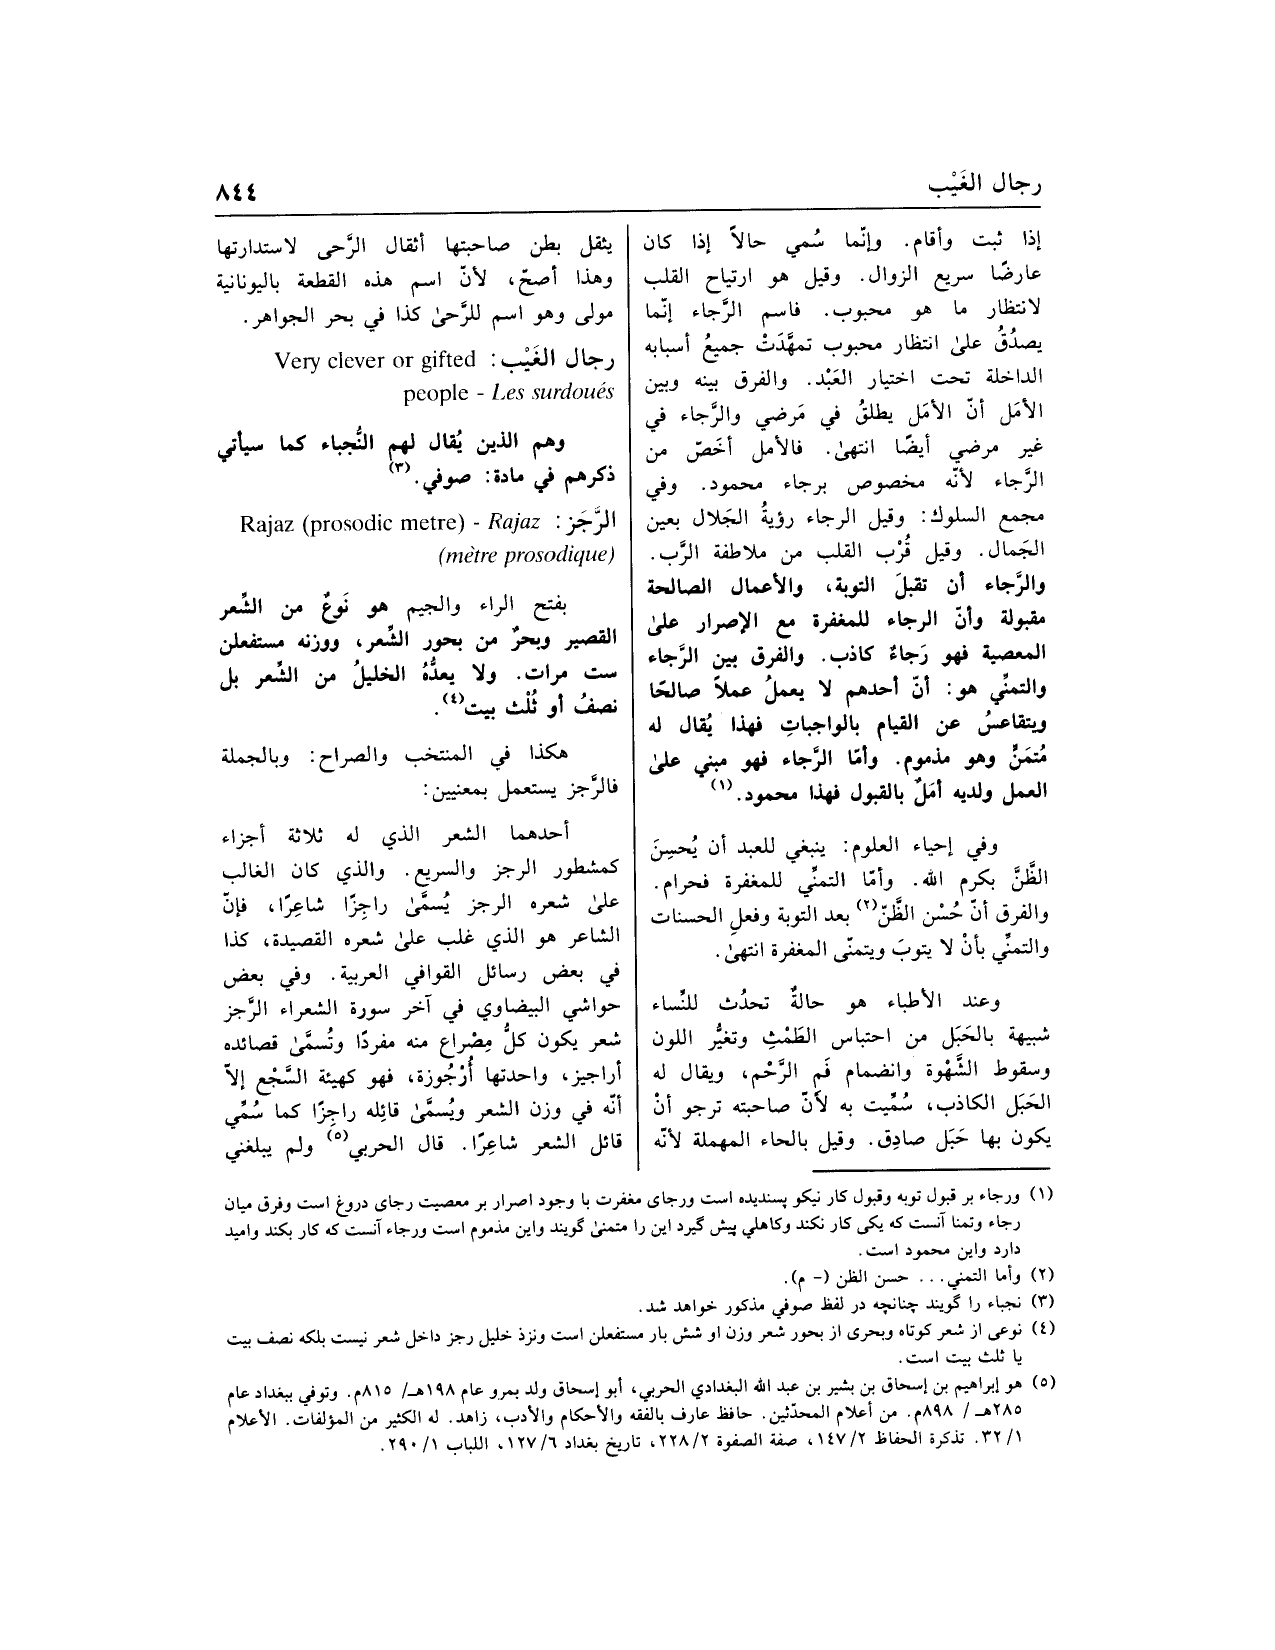 رجال الغَيْب
٨٤٤
إذا ثبت وأقام. وإنّما سُمي حالاً إذا كان
عارضًا سريع الزوال. وقيل هو ارتياح القلب
لانتظار ما هو محبوب. فاسم الرَّجاء إنّما
يصدُقُ علىٰ انتظار محبوب تمهَّدَتْ جميعُ أسبابه
الداخلة تحت اختيار العَبْد. والفرق بينه وبين
الأمَل أنّ الأمَل يطلقُ في مَرضي والرَّجاء في
غير مرضي أيضًا انتهىٰ. فالأمل أخَصّ من
الرَّجاء لأنّه مخصوص برجاء محمود. وفي
مجمع السلوك: وقيل الرجاء رؤيةُ الجَلال بعين
الجَمال. وقيل قُرْب القلب من ملاطفة الرَّب.
والرَّجاء أن تقبلَ التوبة، والأعمال الصالحة
مقبولة وأنّ الرجاء للمغفرة مع الإصرار علىٰ
المعصية فهو رَجاءٌ كاذب. والفرق بين الرَّجاء
والتمنِّي هو: أنّ أحدهم لا يعملُ عملاً صالحًا
ويتقاعسُ عن القيام بالواجباتِ فهذا يُقال له
مُتمَنٍّ وهو مذموم. وأمّا الرَّجاء فهو مبني علىٰ
العمل ولديه أمَلٌ بالقبول فهذا محمود.(١)
وفي إحياء العلوم: ينبغي للعبد أن يُحسِنَ
الظَّنَّ بكرم الله. وأمّا التمنِّي للمغفرة فحرام.
والفرق أنّ حُسْن الظَّنّ(٢) بعد التوبة وفعلِ الحسنات
والتمنِّي بأنْ لا يتوبَ ويتمنّى المغفرة انتهىٰ.
وعند الأطباء هو حالةٌ تحدُث للنِّساء
شبيهة بالحَبَل من احتباس الطَمْثِ وتغيُّر اللون
وسقوط الشَّهْوة وانضمام فَم الرَّحْم، ويقال له
الحَبَل الكاذب، سُمِّيت به لأنّ صاحبته ترجو أنْ
يكون بها حَبَل صادِق. وقيل بالحاء المهملة لأنّه
يثقل بطن صاحبتها أثقال الرَّحى لاستدارتها
وهذا أصحّ، لأنّ اسم هذه القطعة باليونانية
مولى وهو اسم للرَّحىٰ كذا في بحر الجواهر.
رجال الغَيْب: Very clever or gifted
people - Les surdoués
وهم الذين يُقال لهم النُّجباء كما سيأتي
ذكرهم في مادة: صوفي.(٣)
الرَّجَز: Rajaz (prosodic metre) - Rajaz
(mètre prosodique)
بفتح الراء والجيم هو نَوعٌ من الشِّعر
القصير وبحرٌ من بحور الشِّعر، ووزنه مستفعلن
ست مرات. ولا يعدُّهُ الخليلُ من الشِّعر بل
نصفُ أو ثُلْث بيت(٤).
هكذا في المنتخب والصراح: وبالجملة
فالرَّجز يستعمل بمعنيين:
أحدهما الشعر الذي له ثلاثة أجزاء
كمشطور الرجز والسريع. والذي كان الغالب
علىٰ شعره الرجز يُسمَّىٰ راجِزًا شاعِرًا، فإنّ
الشاعر هو الذي غلب علىٰ شعره القصيدة، كذا
في بعض رسائل القوافي العربية. وفي بعض
حواشي البيضاوي في آخر سورة الشعراء الرَّجز
شعر يكون كلُّ مِصْراع منه مفردًا وتُسمَّىٰ قصائده
أراجيز، واحدتها أُرْجُوزة، فهو كهيئة السَّجْع إلاّ
أنّه في وزن الشعر ويُسمَّىٰ قائِله راجِزًا كما سُمِّي
قائل الشعر شاعِرًا. قال الحربي(٥) ولم يبلغني
(١) ورجاء بر قبول توبه وقبول كار نيكو پسنديده است ورجاى مغفرت با وجود اصرار بر معصيت رجاى دروغ است وفرق ميان
رجاء وتمنا آنست كه يكى كار نكند وكاهلي پيش گيرد اين را متمنىٰ گويند واين مذموم است ورجاء آنست كه كار بكند واميد
دارد واين محمود است.
(٢) وأما التمني... حسن الظن (- م).
(٣) نجباء را گويند چنانچه در لفظ صوفي مذكور خواهد شد.
(٤) نوعى از شعر كوتاه وبحرى از بحور شعر وزن او شش بار مستفعلن است ونزذ خليل رجز داخل شعر نيست بلكه نصف بيت
يا ثلث بيت است.
(٥) هو إبراهيم بن إسحاق بن بشير بن عبد الله البغدادي الحربي، أبو إسحاق ولد بمرو عام ١٩٨هـ/ ٨١٥م. وتوفي ببغداد عام
٢٨٥هـ / ٨٩٨م. من أعلام المحدّثين. حافظ عارف بالفقه والأحكام والأدب، زاهد. له الكثير من المؤلفات. الأعلام
٣٢/١. تذكرة الحفاظ ١٤٧/٢، صفة الصفوة ٢٢٨/٢، تاريخ بغداد ١٢٧/٦، اللباب ٢٩٠/١.